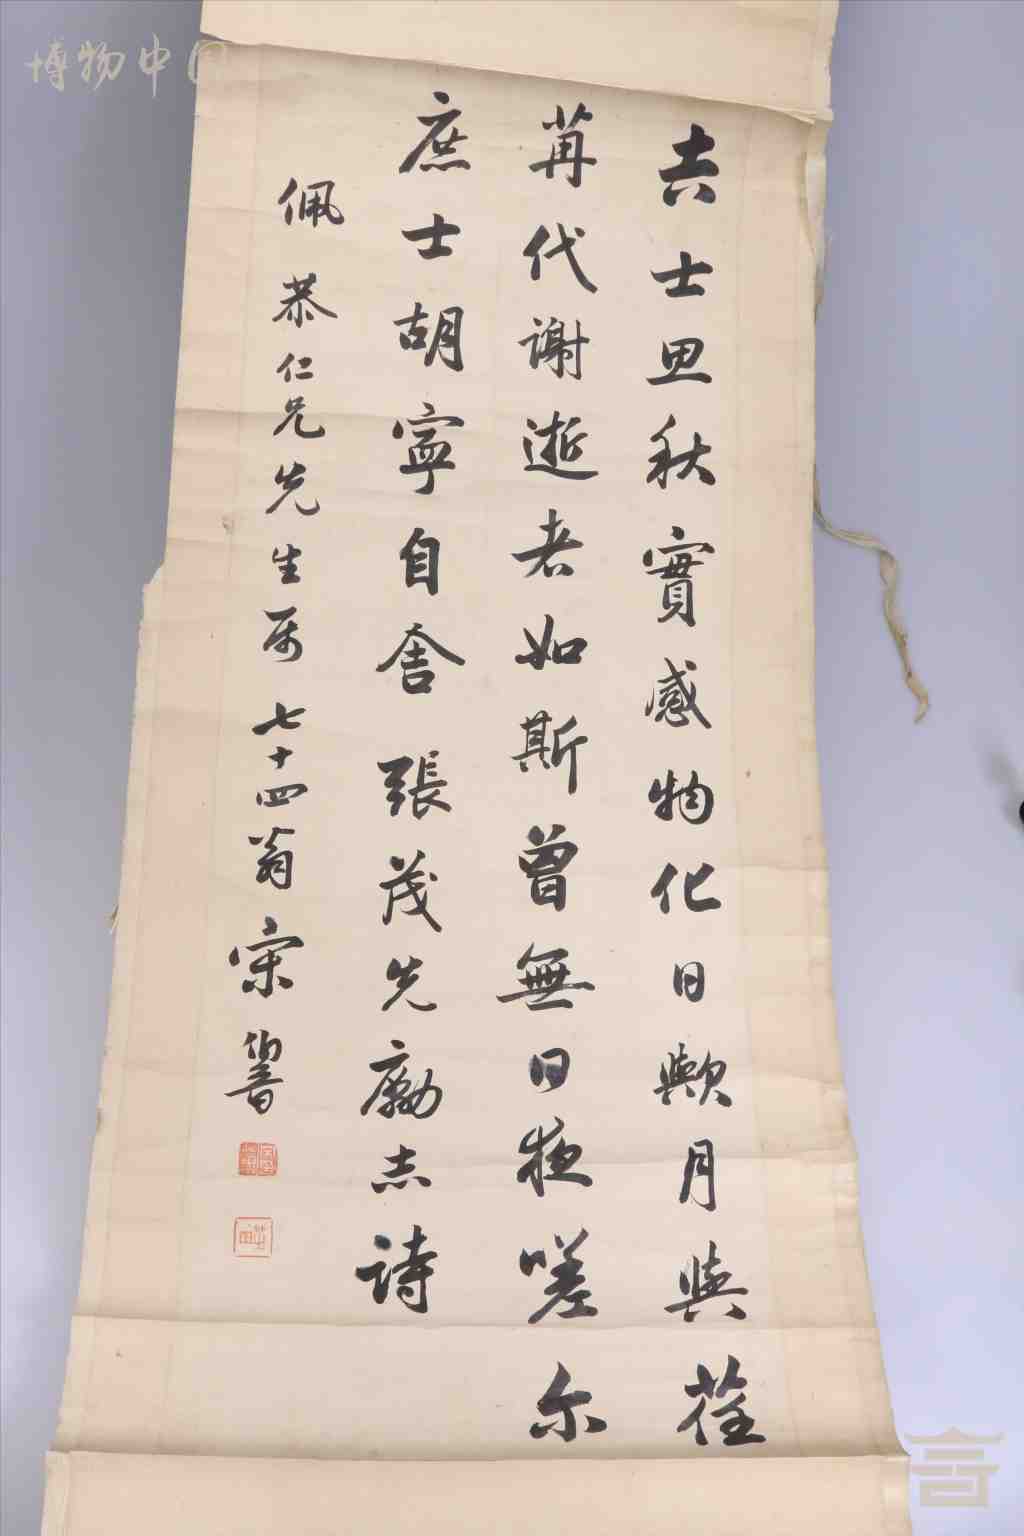 吉士思秋實感物化日歟月與荏
苒代謝逝者如斯曾無日夜嗟尔
庶士胡寧自舍 張茂先勵志詩
佩恭仁兄先生属 七十四翁宋
博物中国